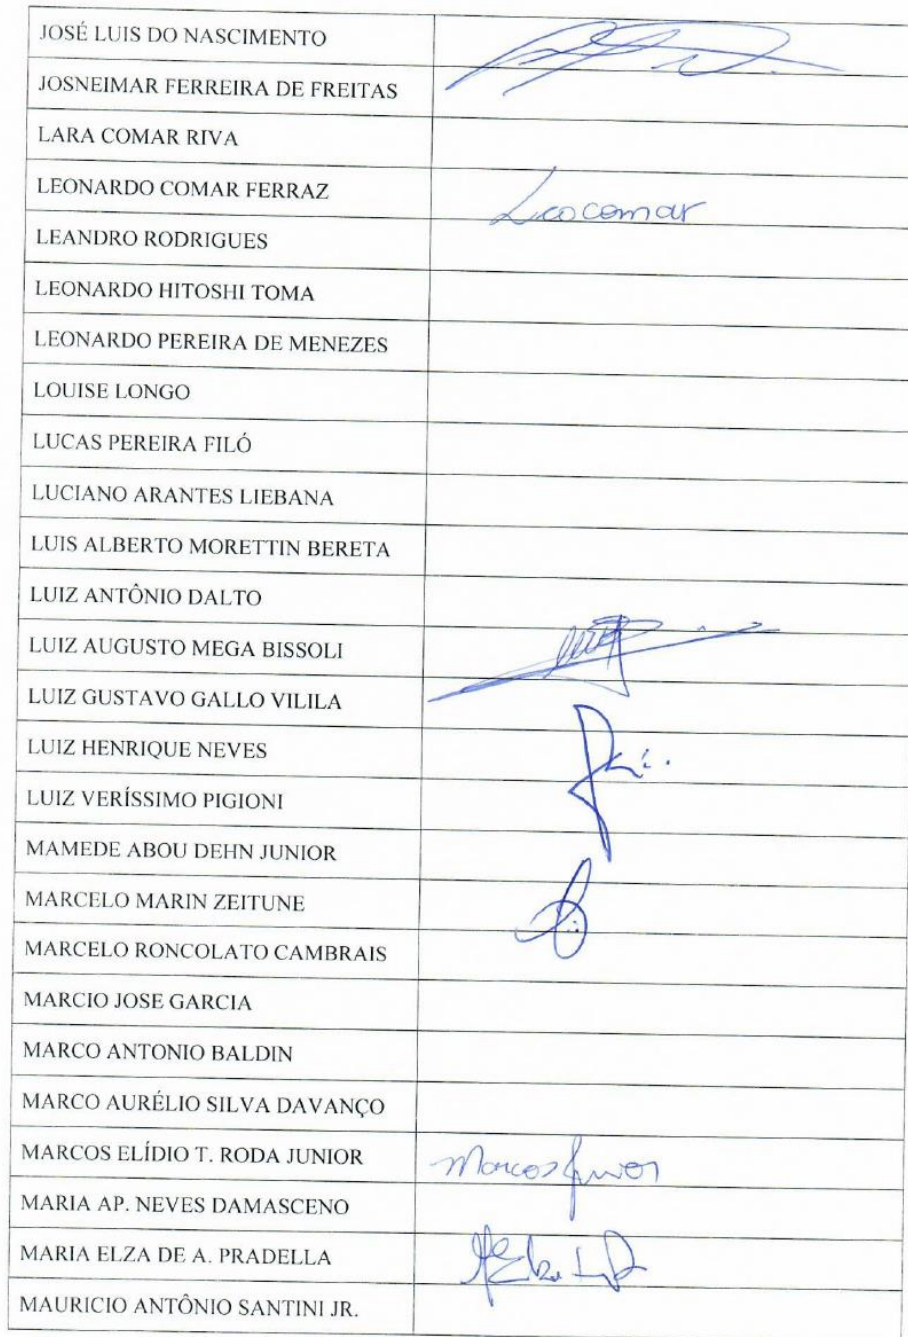 JOSÉ LUIS DO NASCIMENTO
JOSNEIMAR FERREIRA DE FREITAS
LARA COMAR RIVA
LEONARDO COMAR FERRAZ Leocomar
LEANDRO RODRIGUES
LEONARDO HITOSHI TOMA
LEONARDO PEREIRA DE MENEZES
LOUISE LONGO
LUCAS PEREIRA FILÓ
LUCIANO ARANTES LIEBANA
LUIS ALBERTO MORETTIN BERETA
LUIZ ANTÔNIO DALTO
LUIZ AUGUSTO MEGA BISSOLI
LUIZ GUSTAVO GALLO VILILA
LUIZ HENRIQUE NEVES
LUIZ VERÍSSIMO PIGIONI
MAMEDE ABOU DEHN JUNIOR
MARCELO MARIN ZEITUNE
MARCELO RONCOLATO CAMBRAIS
MARCIO JOSE GARCIA
MARCO ANTONIO BALDIN
MARCO AURÉLIO SILVA DAVANÇO
MARCOS ELÍDIO T. RODA JUNIOR Marcos Junior
MARIA AP. NEVES DAMASCENO
MARIA ELZA DE A. PRADELLA
MAURICIO ANTÔNIO SANTINI JR.